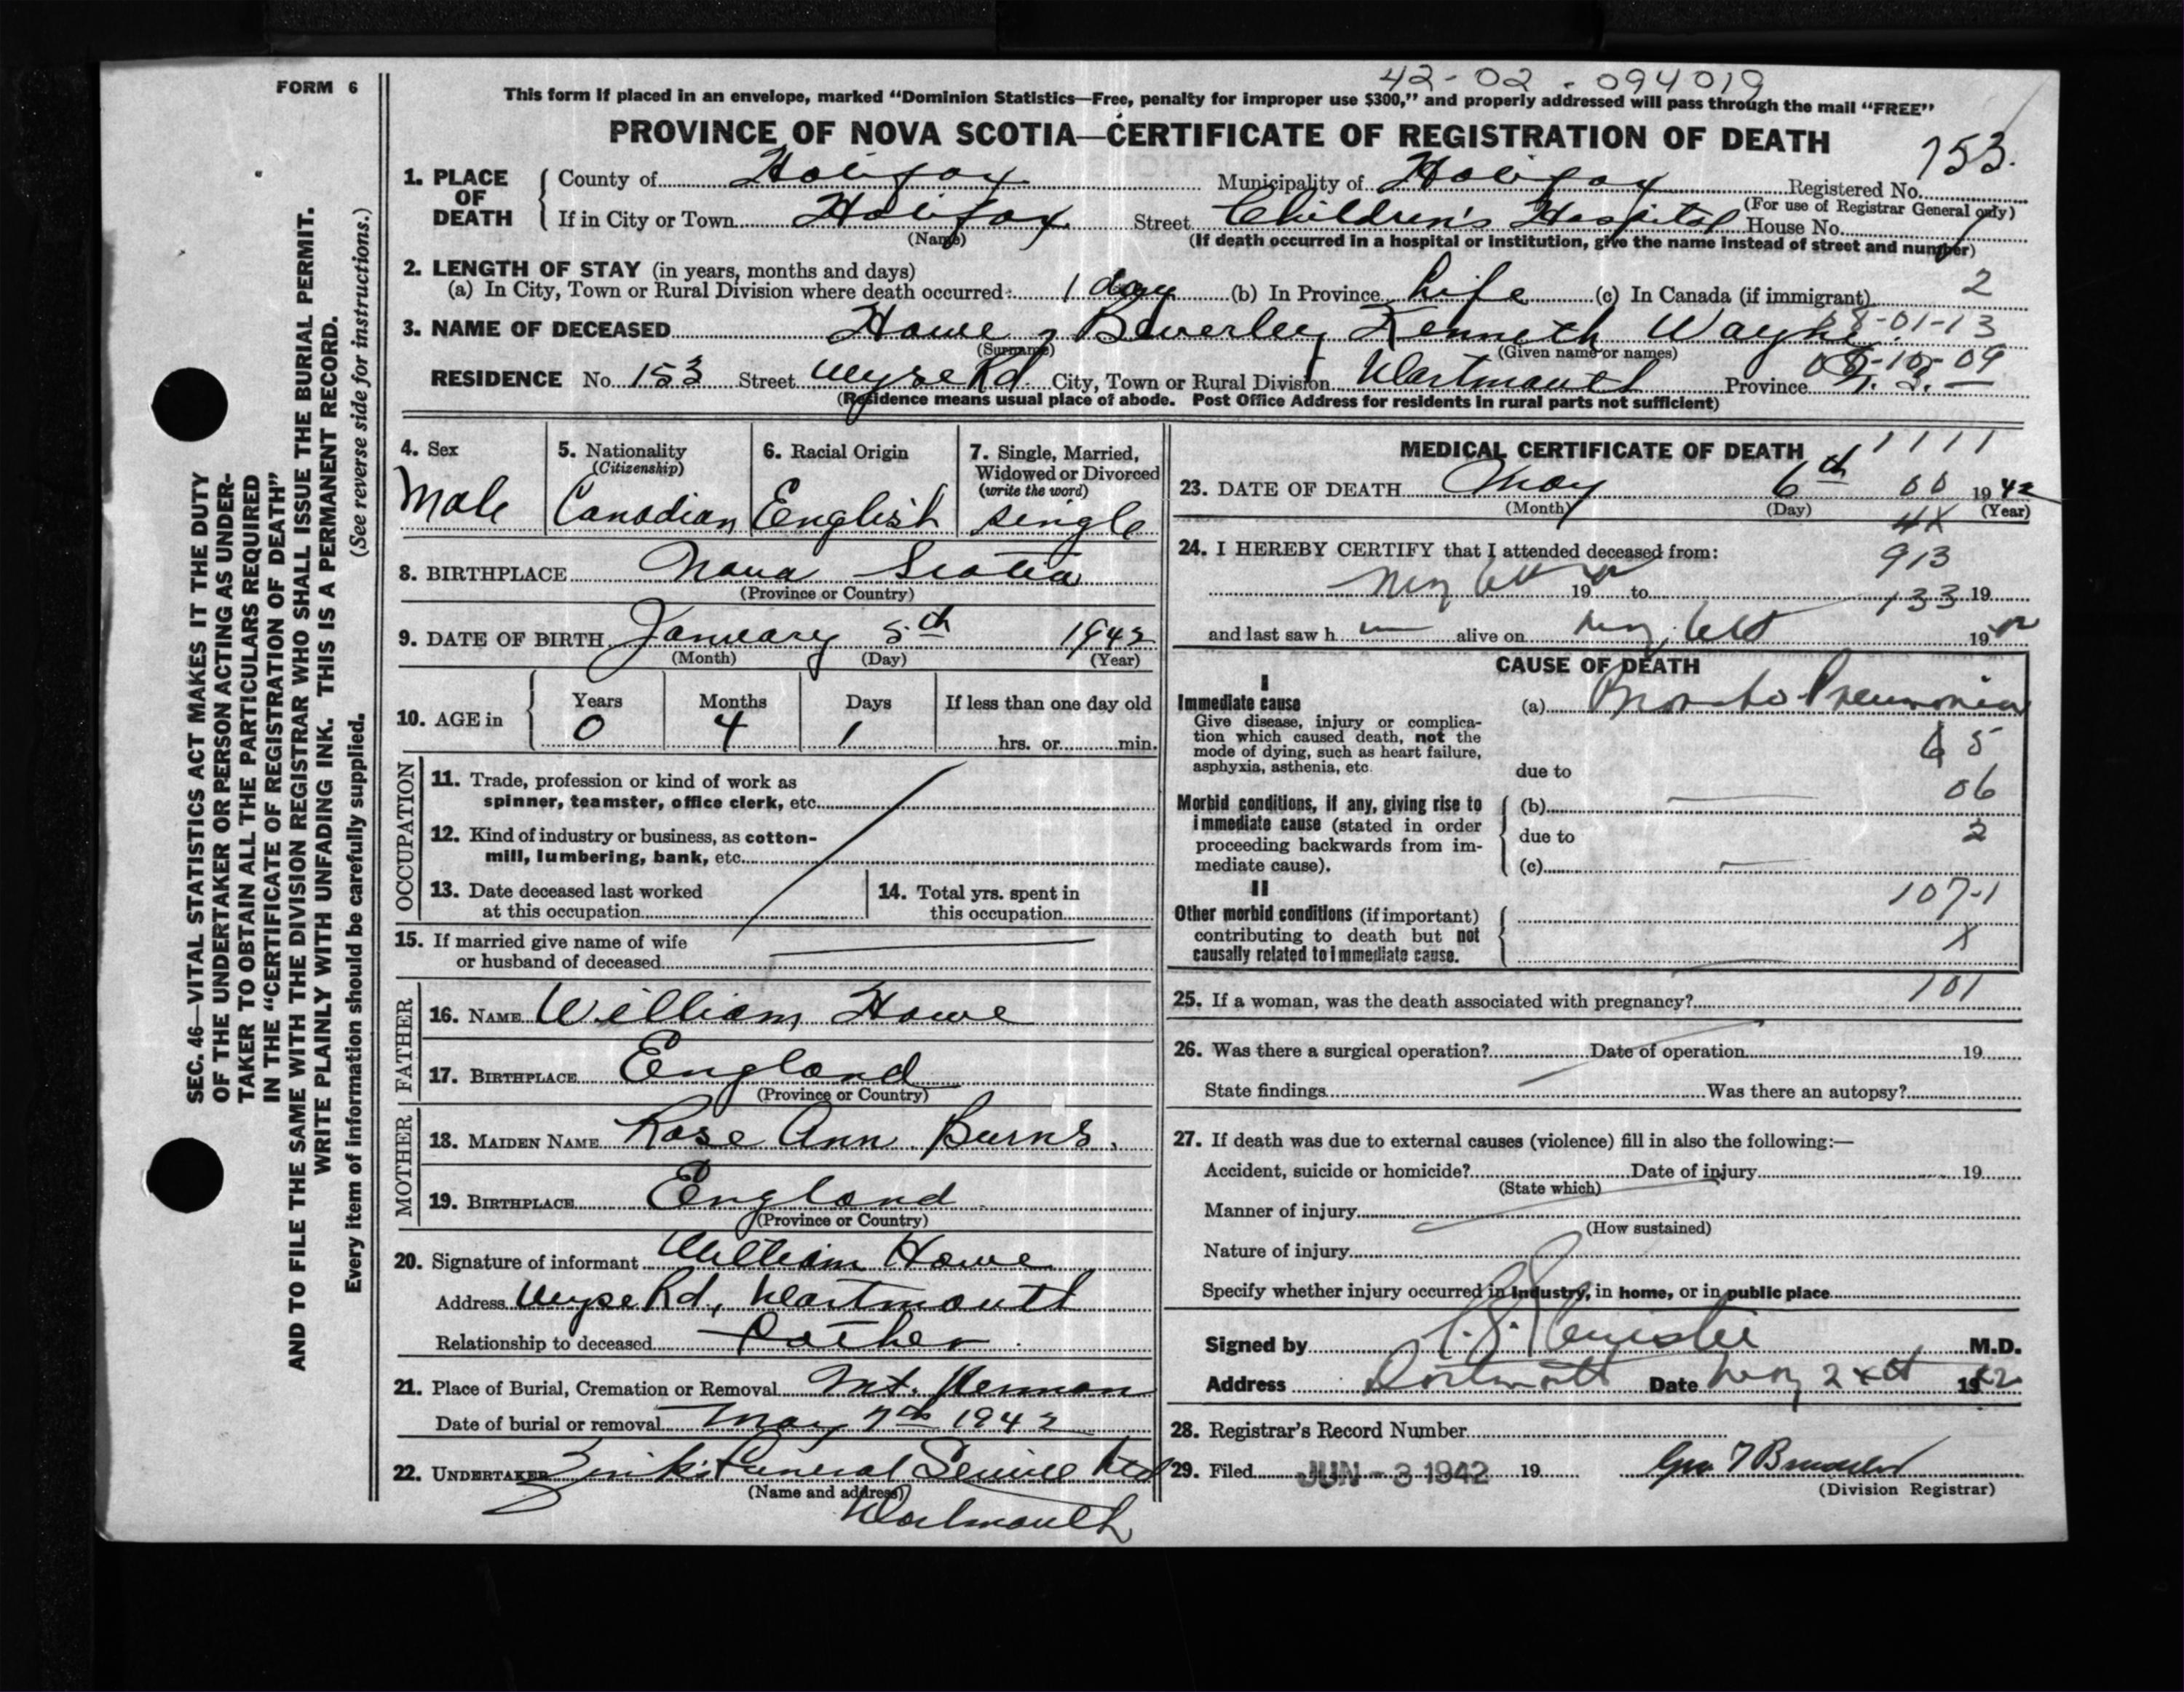 FORM 6
42-02-094019
This form if placed in an envelope, marked "Dominion Statistics—Free, penalty for improper use $300," and properly addressed will pass through the mail "FREE"
PROVINCE OF NOVA SCOTIA—CERTIFICATE OF REGISTRATION OF DEATH
1. PLACE OF DEATH County of Halifax Municipality of Halifax Registered No. 753.
(For use of Registrar General only)
If in City or Town Halifax Street Children's Hospital House No.
(Name) (If death occurred in a hospital or institution, give the name instead of street and number)
2. LENGTH OF STAY (in years, months and days)
(a) In City, Town or Rural Division where death occurred 1 day (b) In Province Life (c) In Canada (if immigrant) 2
3. NAME OF DECEASED Howe, Beverley Kenneth Wayne 08-01-13
(Surname) (Given name or names)
08-10-09
RESIDENCE No. 153 Street Wyse Rd. City, Town or Rural Division Dartmouth Province N. S.
(Residence means usual place of abode. Post Office Address for residents in rural parts not sufficient)
SEC. 46—VITAL STATISTICS ACT MAKES IT THE DUTY
OF THE UNDERTAKER OR PERSON ACTING AS UNDER-
TAKER TO OBTAIN ALL THE PARTICULARS REQUIRED
IN THE "CERTIFICATE OF REGISTRATION OF DEATH"
AND TO FILE THE SAME WITH THE DIVISION REGISTRAR WHO SHALL ISSUE THE BURIAL PERMIT.
WRITE PLAINLY WITH UNFADING INK. THIS IS A PERMANENT RECORD.
Every item of information should be carefully supplied. (See reverse side for instructions.)
4. Sex
Male
5. Nationality
(Citizenship)
Canadian
6. Racial Origin
English
7. Single, Married,
Widowed or Divorced
(write the word)
single
8. BIRTHPLACE Nova Scotia
(Province or Country)
9. DATE OF BIRTH January 5th 1942
(Month) (Day) (Year)
10. AGE in
Years Months Days If less than one day old
0 4 1 hrs. or min.
OCCUPATION
11. Trade, profession or kind of work as
spinner, teamster, office clerk, etc.
12. Kind of industry or business, as cotton-
mill, lumbering, bank, etc.
13. Date deceased last worked
at this occupation
14. Total yrs. spent in
this occupation
15. If married give name of wife
or husband of deceased
FATHER
16. NAME William Howe
17. BIRTHPLACE England
(Province or Country)
MOTHER
18. MAIDEN NAME Rose Ann Burns.
19. BIRTHPLACE England
(Province or Country)
20. Signature of informant William Howe
Address Wyse Rd, Dartmouth
Relationship to deceased Father
21. Place of Burial, Cremation or Removal Mt. Hermon
Date of burial or removal May 7th 1942
22. UNDERTAKER Zink's Funeral Service Ltd
(Name and address)
Dartmouth
MEDICAL CERTIFICATE OF DEATH 1111
23. DATE OF DEATH May 6th 00 1942
(Month) (Day) (Year)
4X
24. I HEREBY CERTIFY that I attended deceased from:
913
May 6th 1942 to 133 19
and last saw h alive on May 6th 1942
CAUSE OF DEATH
I
Immediate cause
Give disease, injury or complica-
tion which caused death, not the
mode of dying, such as heart failure,
asphyxia, asthenia, etc.
(a) Broncho-Pneumonia
65
due to
06
Morbid conditions, if any, giving rise to
immediate cause (stated in order
proceeding backwards from im-
mediate cause).
(b)
due to 2
(c)
II
107-1
Other morbid conditions (if important)
contributing to death but not
causally related to immediate cause.
X
25. If a woman, was the death associated with pregnancy? 101
26. Was there a surgical operation? Date of operation 19
State findings Was there an autopsy?
27. If death was due to external causes (violence) fill in also the following:—
Accident, suicide or homicide? Date of injury 19
(State which)
Manner of injury
(How sustained)
Nature of injury
Specify whether injury occurred in industry, in home, or in public place
Signed by M.D.
Address Dartmouth Date May 1942
28. Registrar's Record Number
29. Filed JUN - 3 1942 19
(Division Registrar)